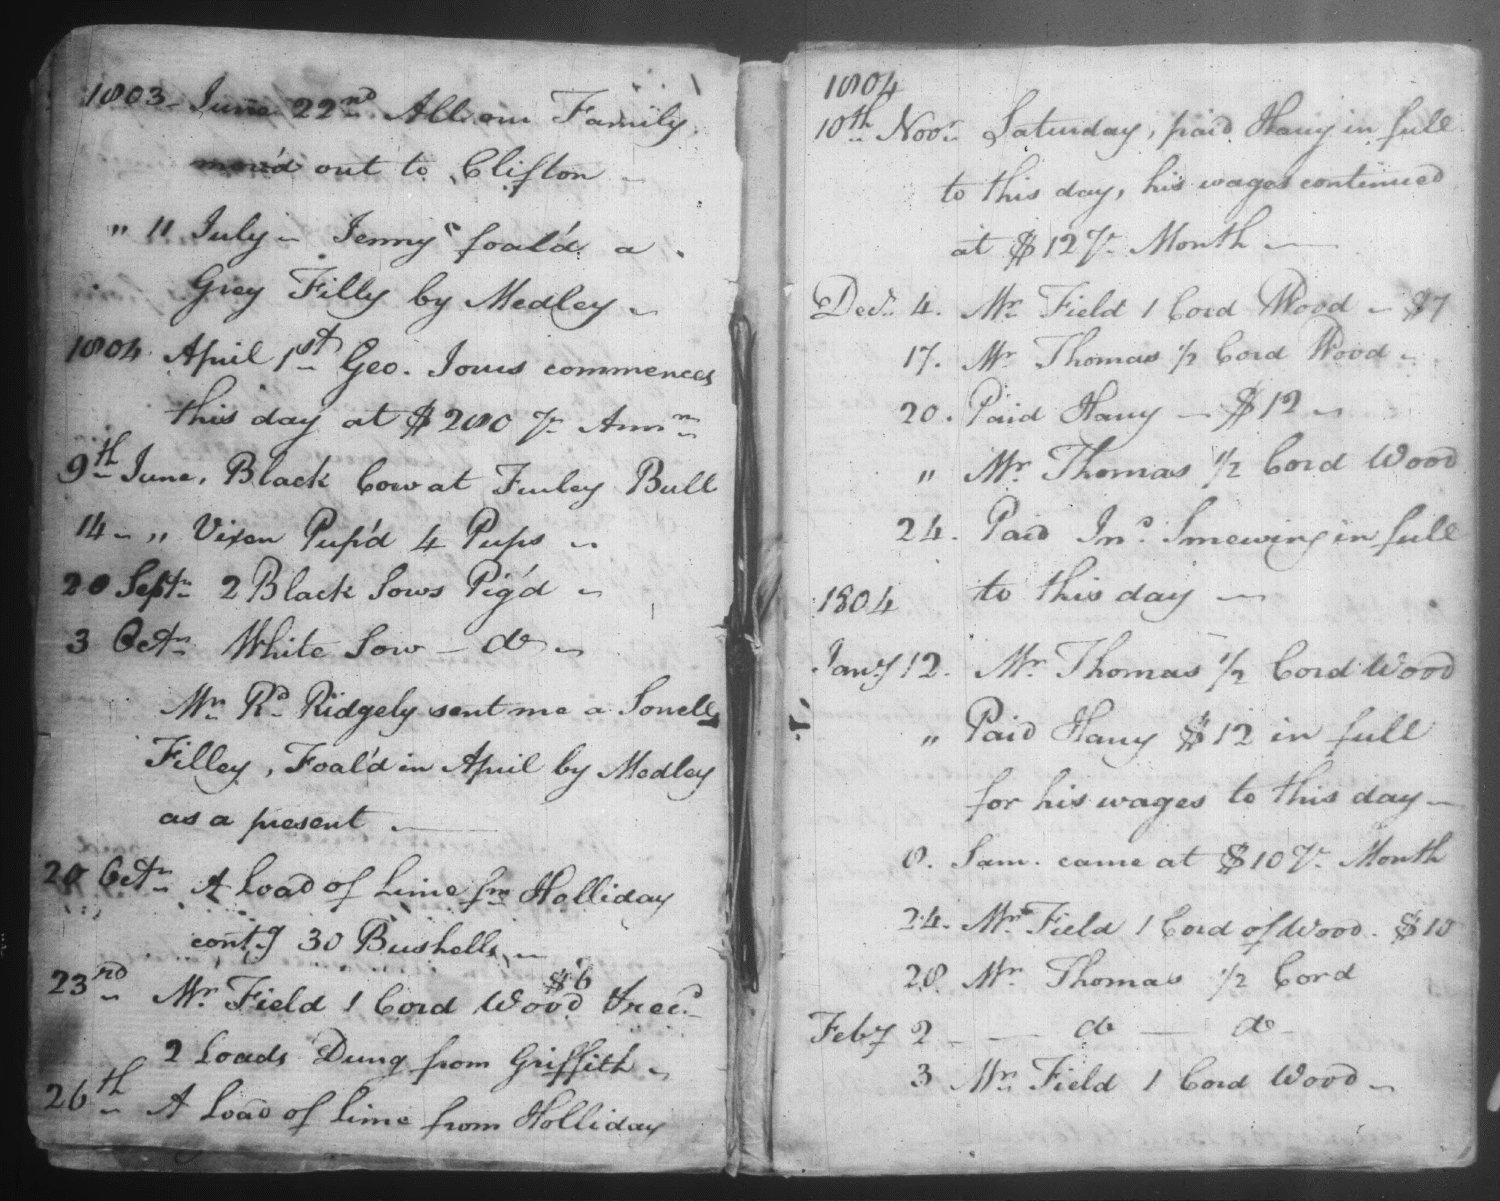 1803 - June 22nd All our Family
mov'd out to Clifton -
" 11 July - Jenny foal'd a
Grey Filly by Medley -
1804 April 1st Geo. Jones commences
this day at $200 pr Annm
9th June, Black Cow at Furley Bull
14 - " Vixen Pup'd 4 Pups -
20 Septr 2 Black Sows Pig'd -
3 Octr White Sow - do -
Mr Rd Ridgely sent me a Sorrell
Filley, Foal'd in April by Medley
as a present -
20 Octr A Load of Lime fm Holliday
contg 30 Bushells -
$6
23rd Mr Field 1 Cord Wood & recd
2 Loads Dung from Griffith -
26th A Load of Lime from Holliday
1804
10th Novr Saturday, paid Harry in full
to this day, his wages continued
at $12 pr Month -
Decr 4. Mr Field 1 Cord Wood - $7
17. Mr Thomas 1/2 Cord Wood -
20. Paid Harry - $12 -
" Mr Thomas 1/2 Cord Wood
24. Paid Jno. Smewing in full
to this day -
1804
Jany 12. Mr Thomas 1/2 Cord Wood
" Paid Harry $12 in full
for his wages to this day -
8. Sam. came at $10 pr Month
24. Mr Field 1 Cord of Wood. $10
28. Mr Thomas 1/2 Cord
Feby 2 - - do - do -
3 Mr Field 1 Cord Wood -